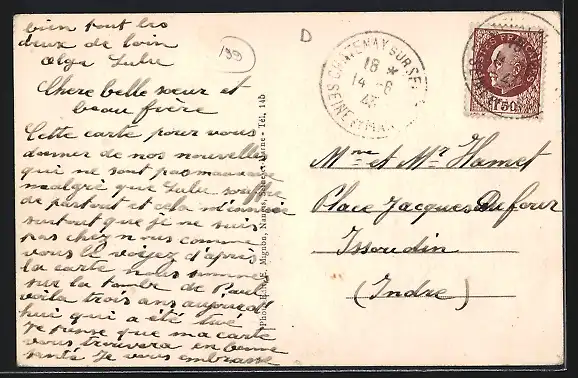 bien tout les
deux de loin
Olga Lulu
Chere belle sœur et
beau frère
Cette carte pour vous
donner de nos nouvelles
qui ne sont pas mauvaise
malgré que Lulu souffre
de partout et cela m'ennuie
surtout que je ne suis
pas chez nous comme
vous le voyez d'après
la carte nous somme
sur la tombe de Paul
voila trois ans aujourd
hui qui a été tué
Je pense que ma carte
vous trouvera en bonne
santé Je vous embrasse
199
D
CHATENAY SUR SEINE
18 *
14 - 6
43
SEINE ET MARNE
1F50
Mme et Mr Hamet
Place Jacques Dufour
Issoudin
(Indre)
Mignon, Nangis, Seine-et-Marne - Tél. 145